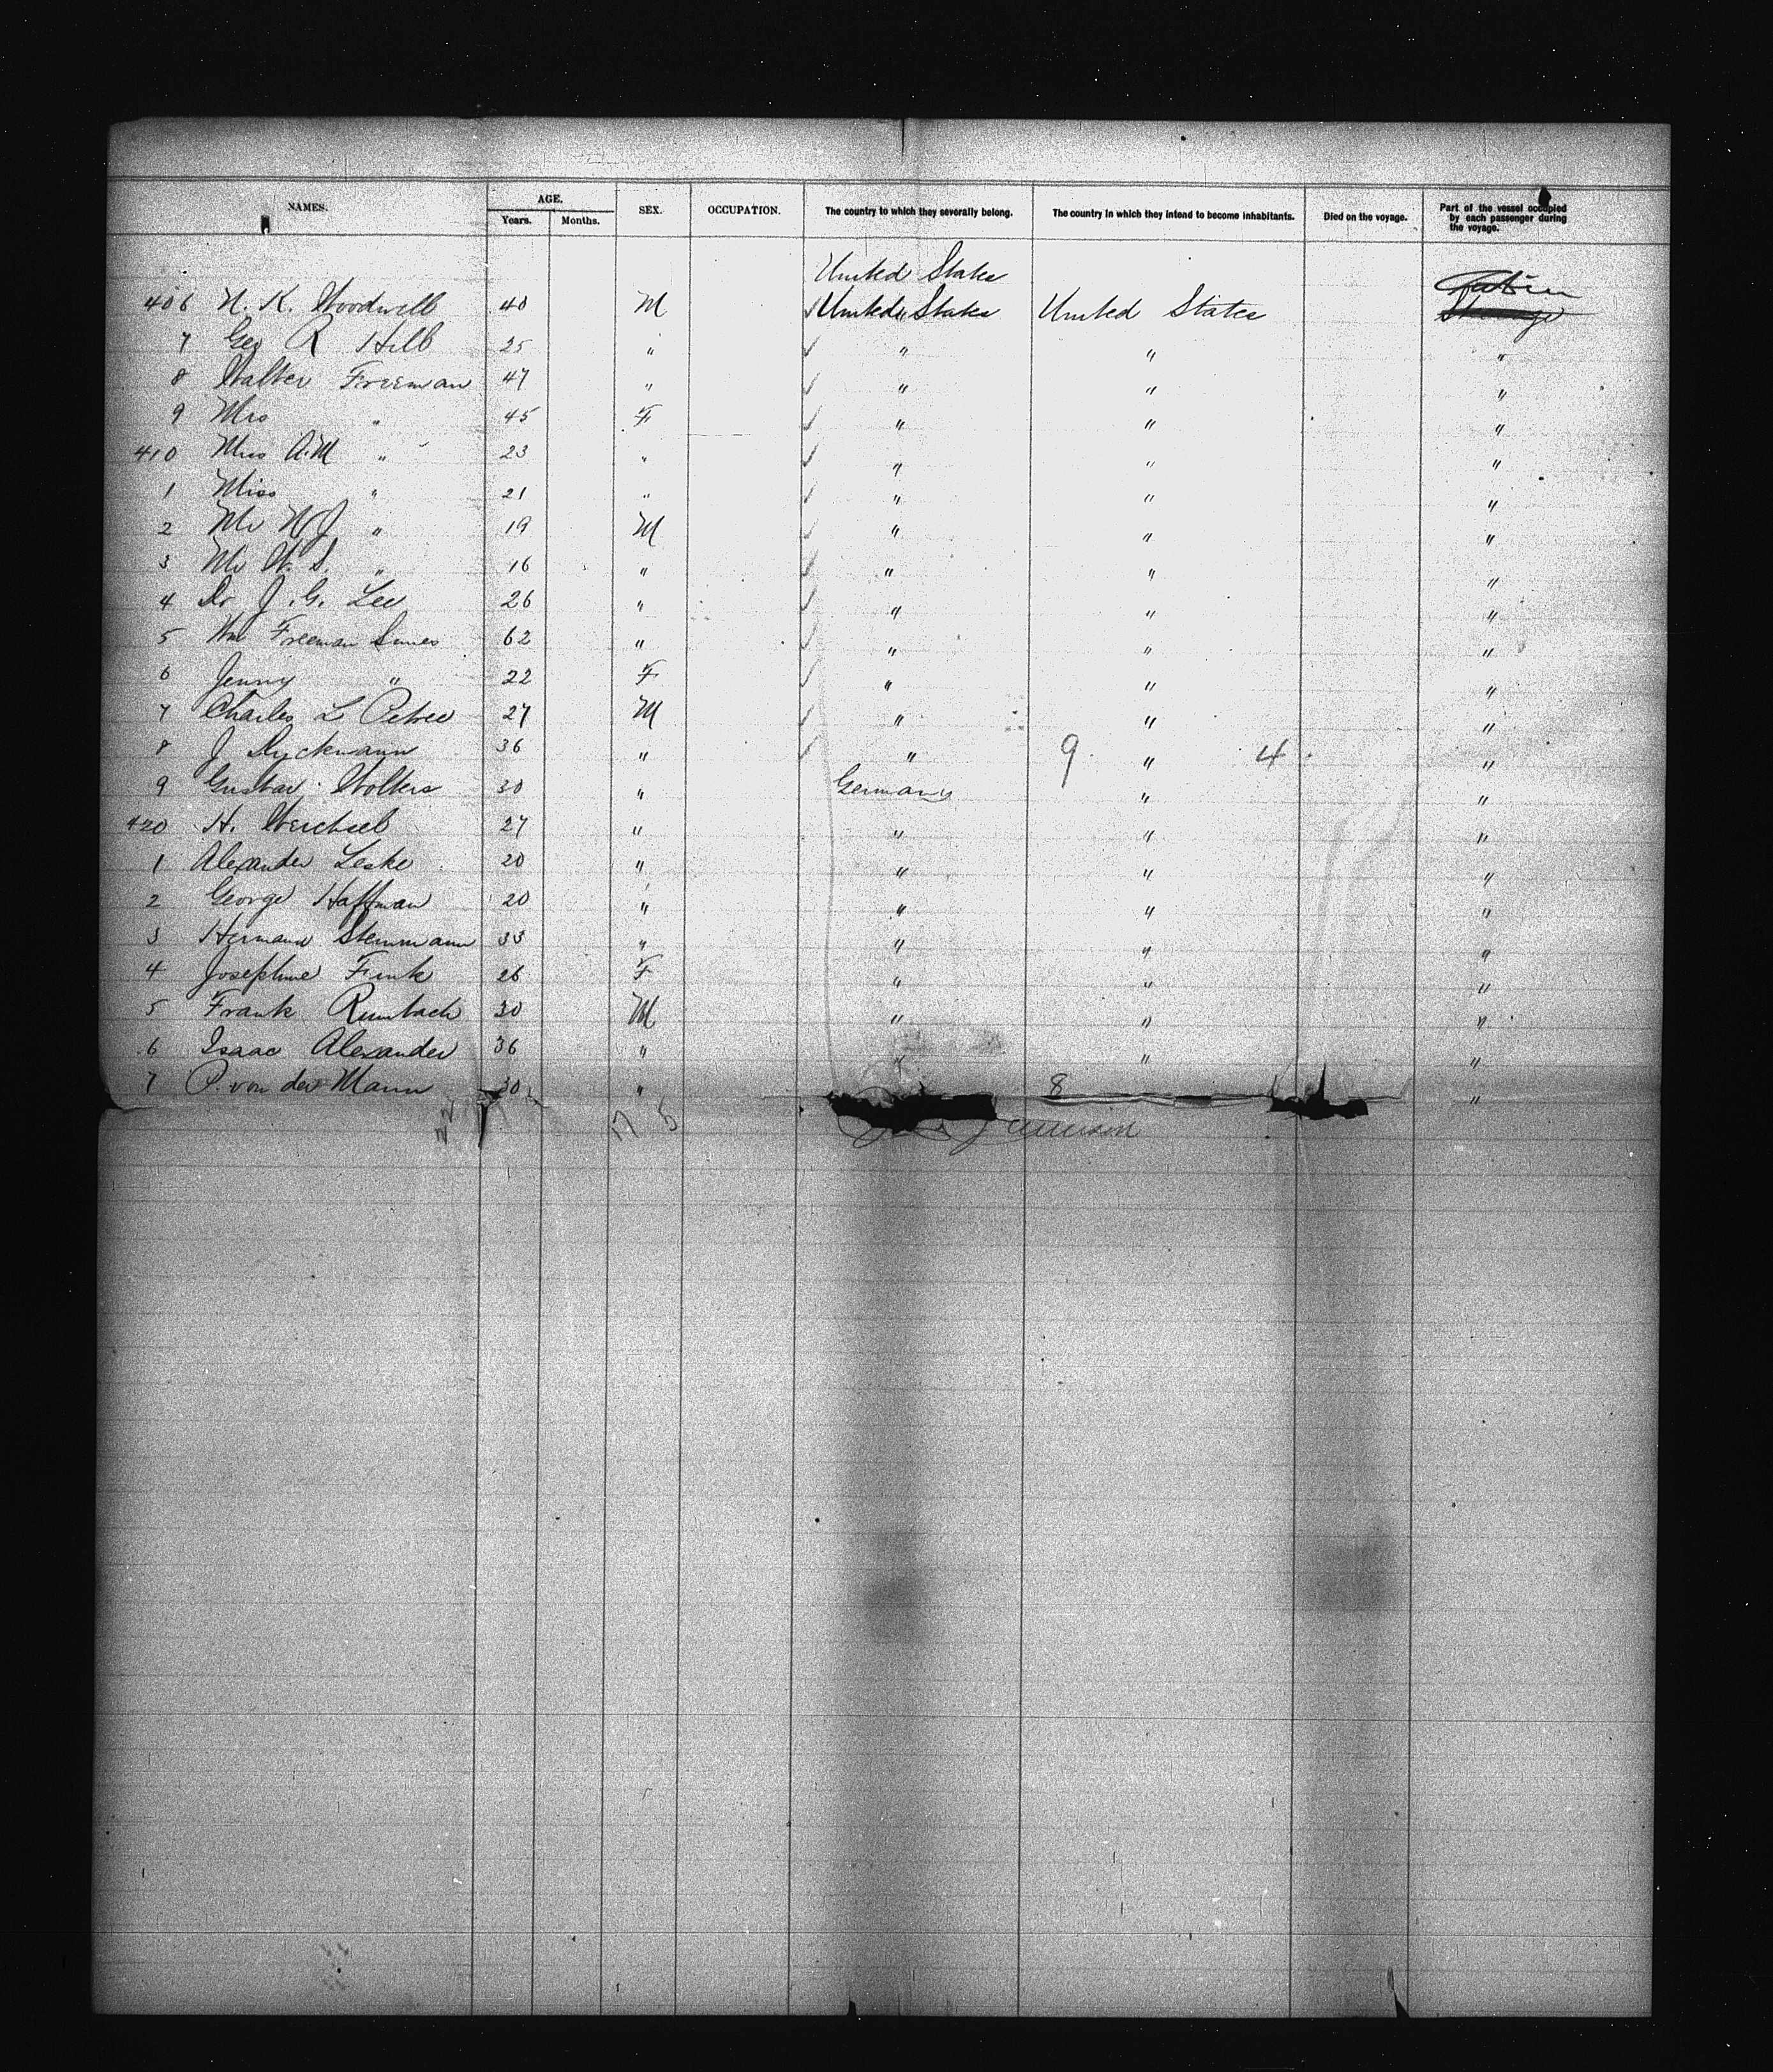 NAMES. AGE. SEX. OCCUPATION. The country to which they severally belong. The country in which they intend to become inhabitants. Died on the voyage. Part of the vessel occupied by each passenger during the voyage.
Years. Months.
United States
Cabin
406 N. K. Woodwell 40 M United States United States Steerage
7 Geo R Hill 25 " " " "
8 Walter Freeman 47 " " " "
9 Mrs " 45 F " " "
410 Miss A.M " 23 " " " "
1 Miss " 21 " " " "
2 Mr N J " 19 M " " "
3 Mr W. S. " 16 " " " "
4 Dr J. G. Lee 26 " " " "
5 Wm Freeman 62 " " " "
6 Jenny " 22 F " " "
7 Charles L Petree 27 M " " "
8 J Ryckmann 36 " " 9 " 4 "
9 Gustav Wolters 30 " Germany " "
420 H. Weichsel 27 " " " "
1 Alexander Leske 20 " " " "
2 George Haffman 20 " " " "
3 Hermann Stemmann 33 " " " "
4 Josephine Fink 26 F " " "
5 Frank Rumbach 30 M " " "
6 Isaac Alexander 36 " " " "
7 P. von der Mann 30 " 8 "
22 17 5